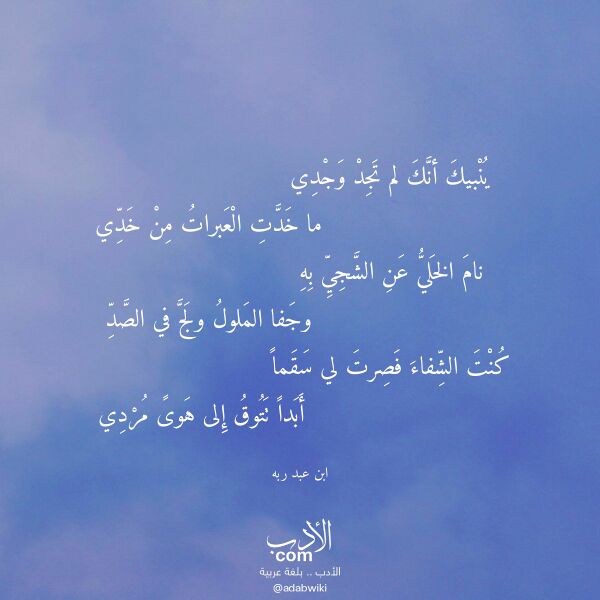 يُنْبيكَ أنَّكَ لم تَجِدْ وَجْدِي
ما خَدَّتِ الْعَبراتُ مِنْ خَدِّي
نامَ الخَليُّ عَنِ الشَّجِيِّ بِهِ
وجَفا المَلولُ ولَجَّ في الصَّدِّ
كُنْتَ الشِّفاءَ فَصِرتَ لي سَقَماً
أَبَداً نَتُوقُ إِلى هَوىً مُرْدِي
ابن عبد ربه
الأدب
com
الأدب .. بلغة عربية
@adabwiki